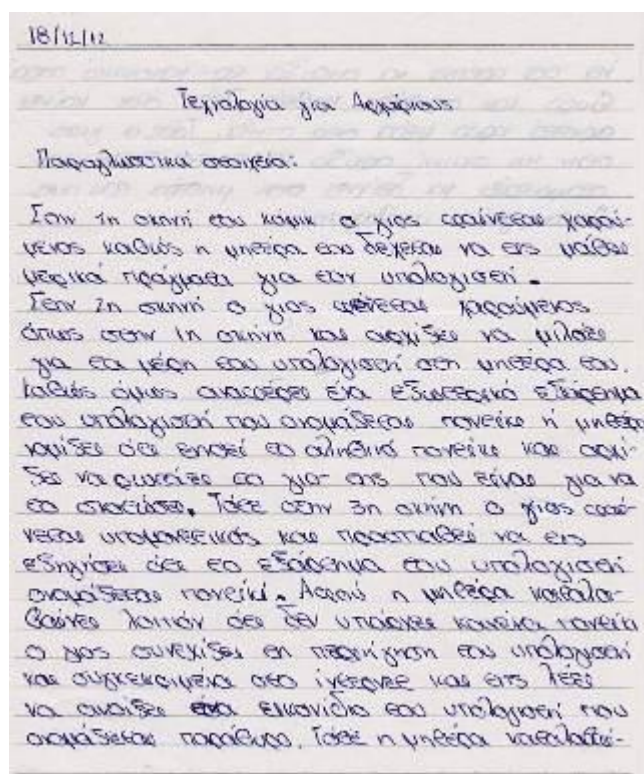 18/12/12
Τεχνολογία για Αρχάριους
Παραγλωσσικά στοιχεία:
Στην 1η σκηνή του κόμικ ο γιος φαίνεται χαρού-
μενος καθώς η μητέρα του δέχεται να της μάθει
μερικά πράγματα για τον υπολογιστή.
Στην 2η σκηνή ο γιος φαίνεται χαρούμενος
όπως στην 1η σκηνή και αρχίζει να μιλάει
για τα μέρη του υπολογιστή στη μητέρα του.
Καθώς όμως αναφέρει ένα εξωτερικό εξάρτημα
του υπολογιστή που ονομάζεται ποντίκι η μητέρα
νομίζει ότι εννοεί το αληθινό ποντίκι και αρχί-
ζει να φωνάζει το γιο της που είναι για να
το σκοτώσει. Τότε στην 3η σκήνη ο γιος φαί-
νεται υπομονετικός και προσπαθεί να της
εξηγήσει ότι το εξάρτημα του υπολογιστή
ονομάζεται ποντίκι. Αφού η μητέρα καταλα-
βαίνει λοιπόν ότι δεν υπάρχει κανένα ποντίκι
ο γιος συνεχίζει τη περιήγηση του υπολογιστή
και συγκεκριμένα στο ίντερνετ και της λέει
να ανοίξει ένα εικονίδιο του υπολογιστή που
ονομάζεται παράθυρο. Τότε η μητέρα καταλαβαί-